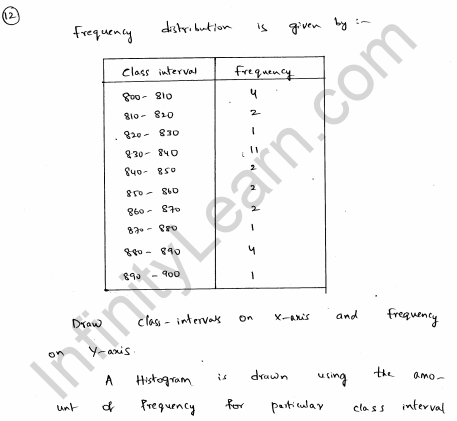 12
Frequency distribution is given by :-
Class interval Frequency
800 - 810 4
810 - 820 2
820 - 830 1
830 - 840 11
840 - 850 2
850 - 860 2
860 - 870 2
870 - 880 1
880 - 890 4
890 - 900 1
Draw class-intervals on X-axis and frequency
on Y-axis.
A Histogram is drawn using the amo-
unt of frequency for particular class interval
InfinityLearn.com